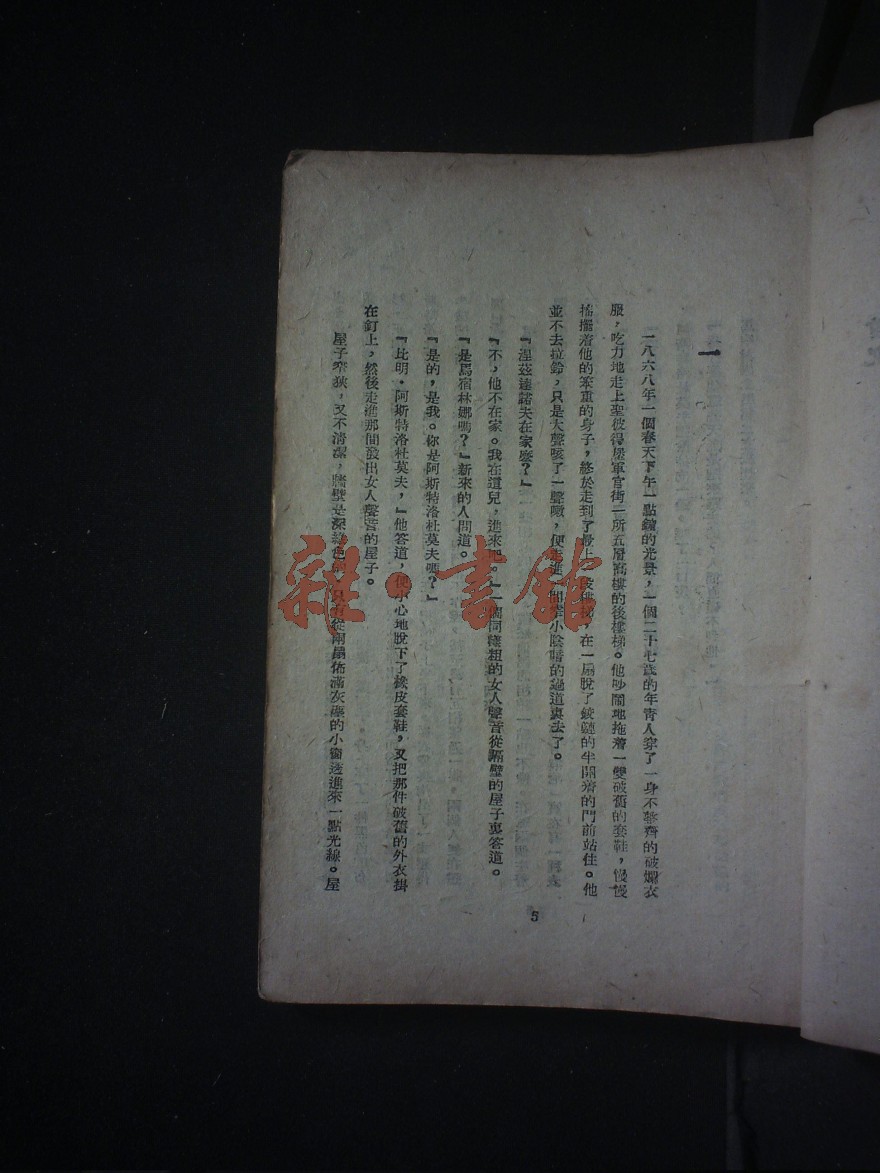 一
一八六八年一個春天下午一點鐘的光景，一個二十七歲的年青人穿了一身不整齊的破爛衣
服，吃力地走上聖彼得堡軍官街一所五層高樓的後樓梯。他吵鬧地拖着一雙破舊的套鞋，慢慢
搖擺着他的笨重的身子，終於走到了最上一段樓梯，在一扇脫了鉸鏈的半開着的門前站住。他
並不去拉鈴，只是大聲咳了一聲嗽，便走進一間窄小陰暗的過道裏去了。
『涅茲達諾夫在家麼？』
『不，他不在家。我在這兒，進來吧。』一個同樣粗的女人聲音從隔壁的屋子裏答道。
『是馬宿林娜嗎？』新來的人問道。
『是的，是我。你是阿斯特洛杜莫夫嗎？』
『比明·阿斯特洛杜莫夫，』他答道，便小心地脫下了橡皮套鞋，又把那件破舊的外衣掛
在釘上，然後走進那間發出女人聲音的屋子。
屋子窄狹，又不清潔，牆壁是深綠色的，只有從兩扇佈滿灰塵的小窗透進來一點光線。屋
5
雜·書館